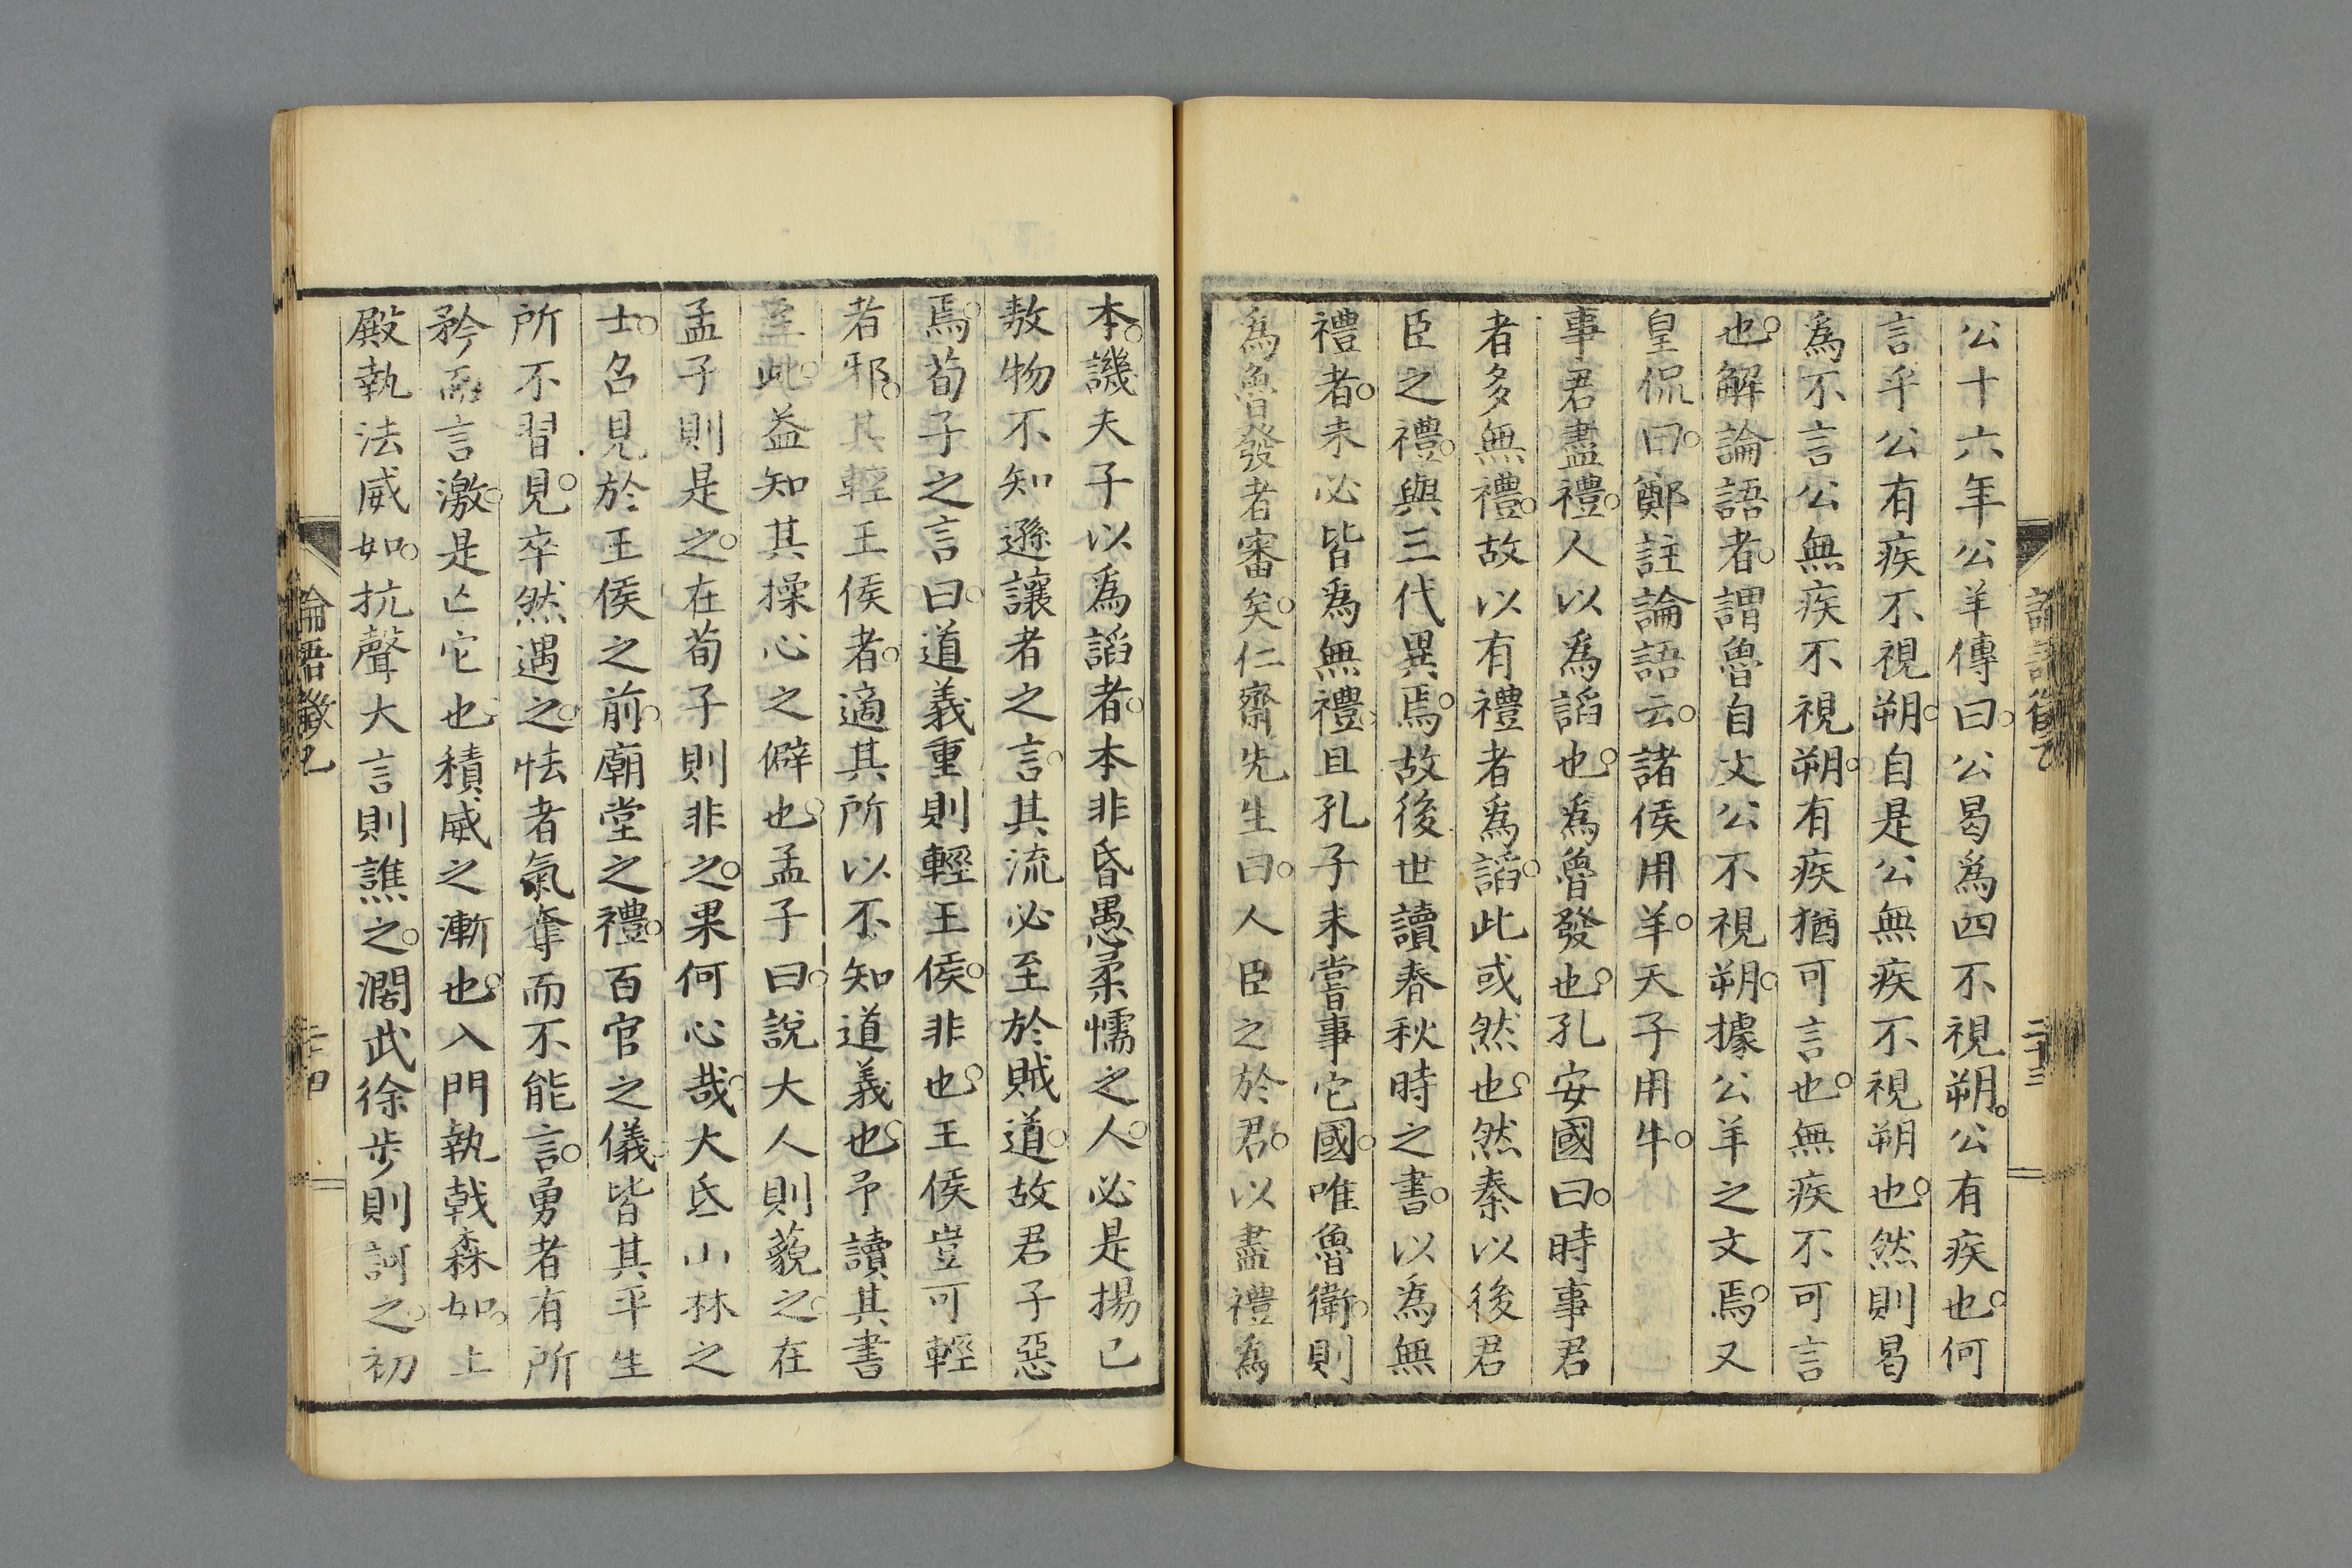 公十六年公羊傳曰。公曷爲四不視朔。公有疾也。何
言乎公有疾不視朔。自是公無疾不視朔也。然則曷
爲不言公無疾不視朔。有疾猶可言也。無疾不可言
也。解論語者。謂魯自文公不視朔。據公羊之文焉。又
皇侃曰。鄭註論語云。諸侯用羊。天子用牛。
事君盡禮。人以爲諂也。爲魯發也。孔安國曰。時事君
者多無禮。故以有禮者爲諂。此或然也。然秦以後君
臣之禮。與三代異焉。故後世讀春秋時之書。以爲無
禮者。未必皆爲無禮。且孔子未嘗事它國。唯魯衛。則
爲魯發者審矣。仁齋先生曰。人臣之於君。以盡禮爲
論語徵乙
二十三
本。譏夫子以爲諂者。本非昏愚柔懦之人。必是揚己
敖物不知遜讓者之言。其流必至於賊道。故君子惡
焉。荀子之言曰。道義重則輕王侯。非也。王侯豈可輕
者邪。其輕王侯者。適其所以不知道義也。予讀其書
至此。益知其操心之僻也。孟子曰。說大人則藐之。在
孟子則是之。在荀子則非之。果何心哉。大氐山林之
士。召見於王侯之前。廟堂之禮。百官之儀。皆其平生
所不習見。卒然遇之。怯者氣奪而不能言。勇者有所
矜而言激。是亡它也。積威之漸也。入門執戟森如。上
殿執法威如。抗聲大言則譙之。濶武徐步則訶之。初
論語徵乙
二十四